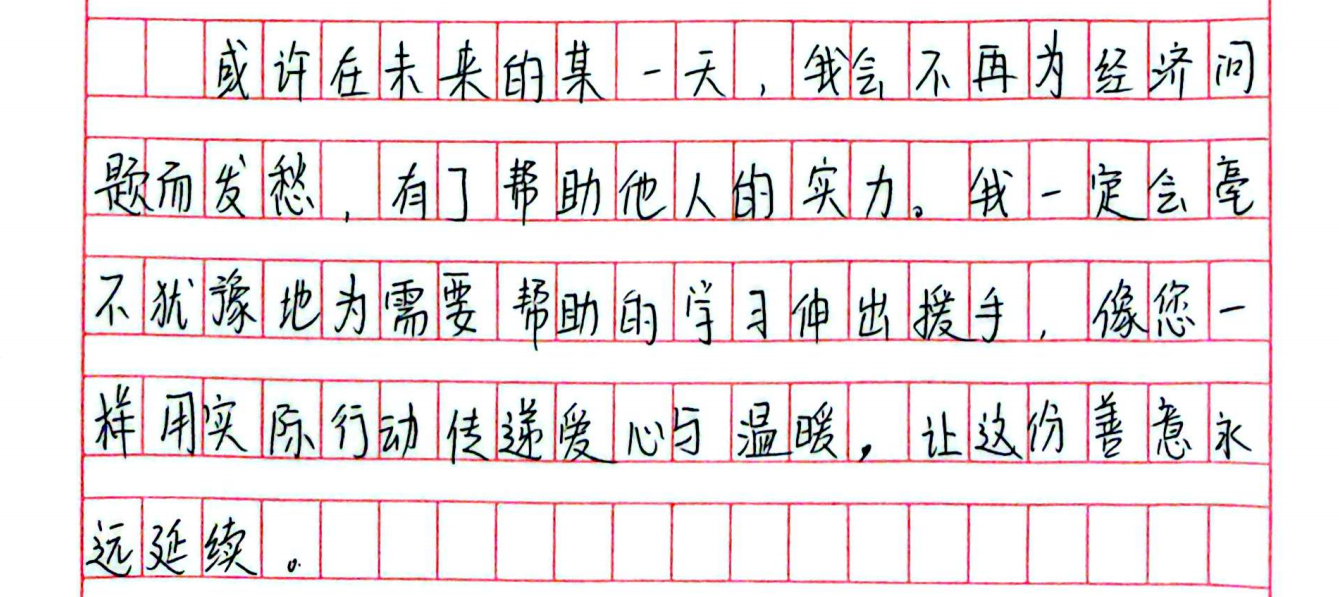 或许在未来的某一天，我会不再为经济问
题而发愁，有了帮助他人的实力。我一定会毫
不犹豫地为需要帮助的学习伸出援手，像您一
样用实际行动传递爱心与温暖，让这份善意永
远延续。